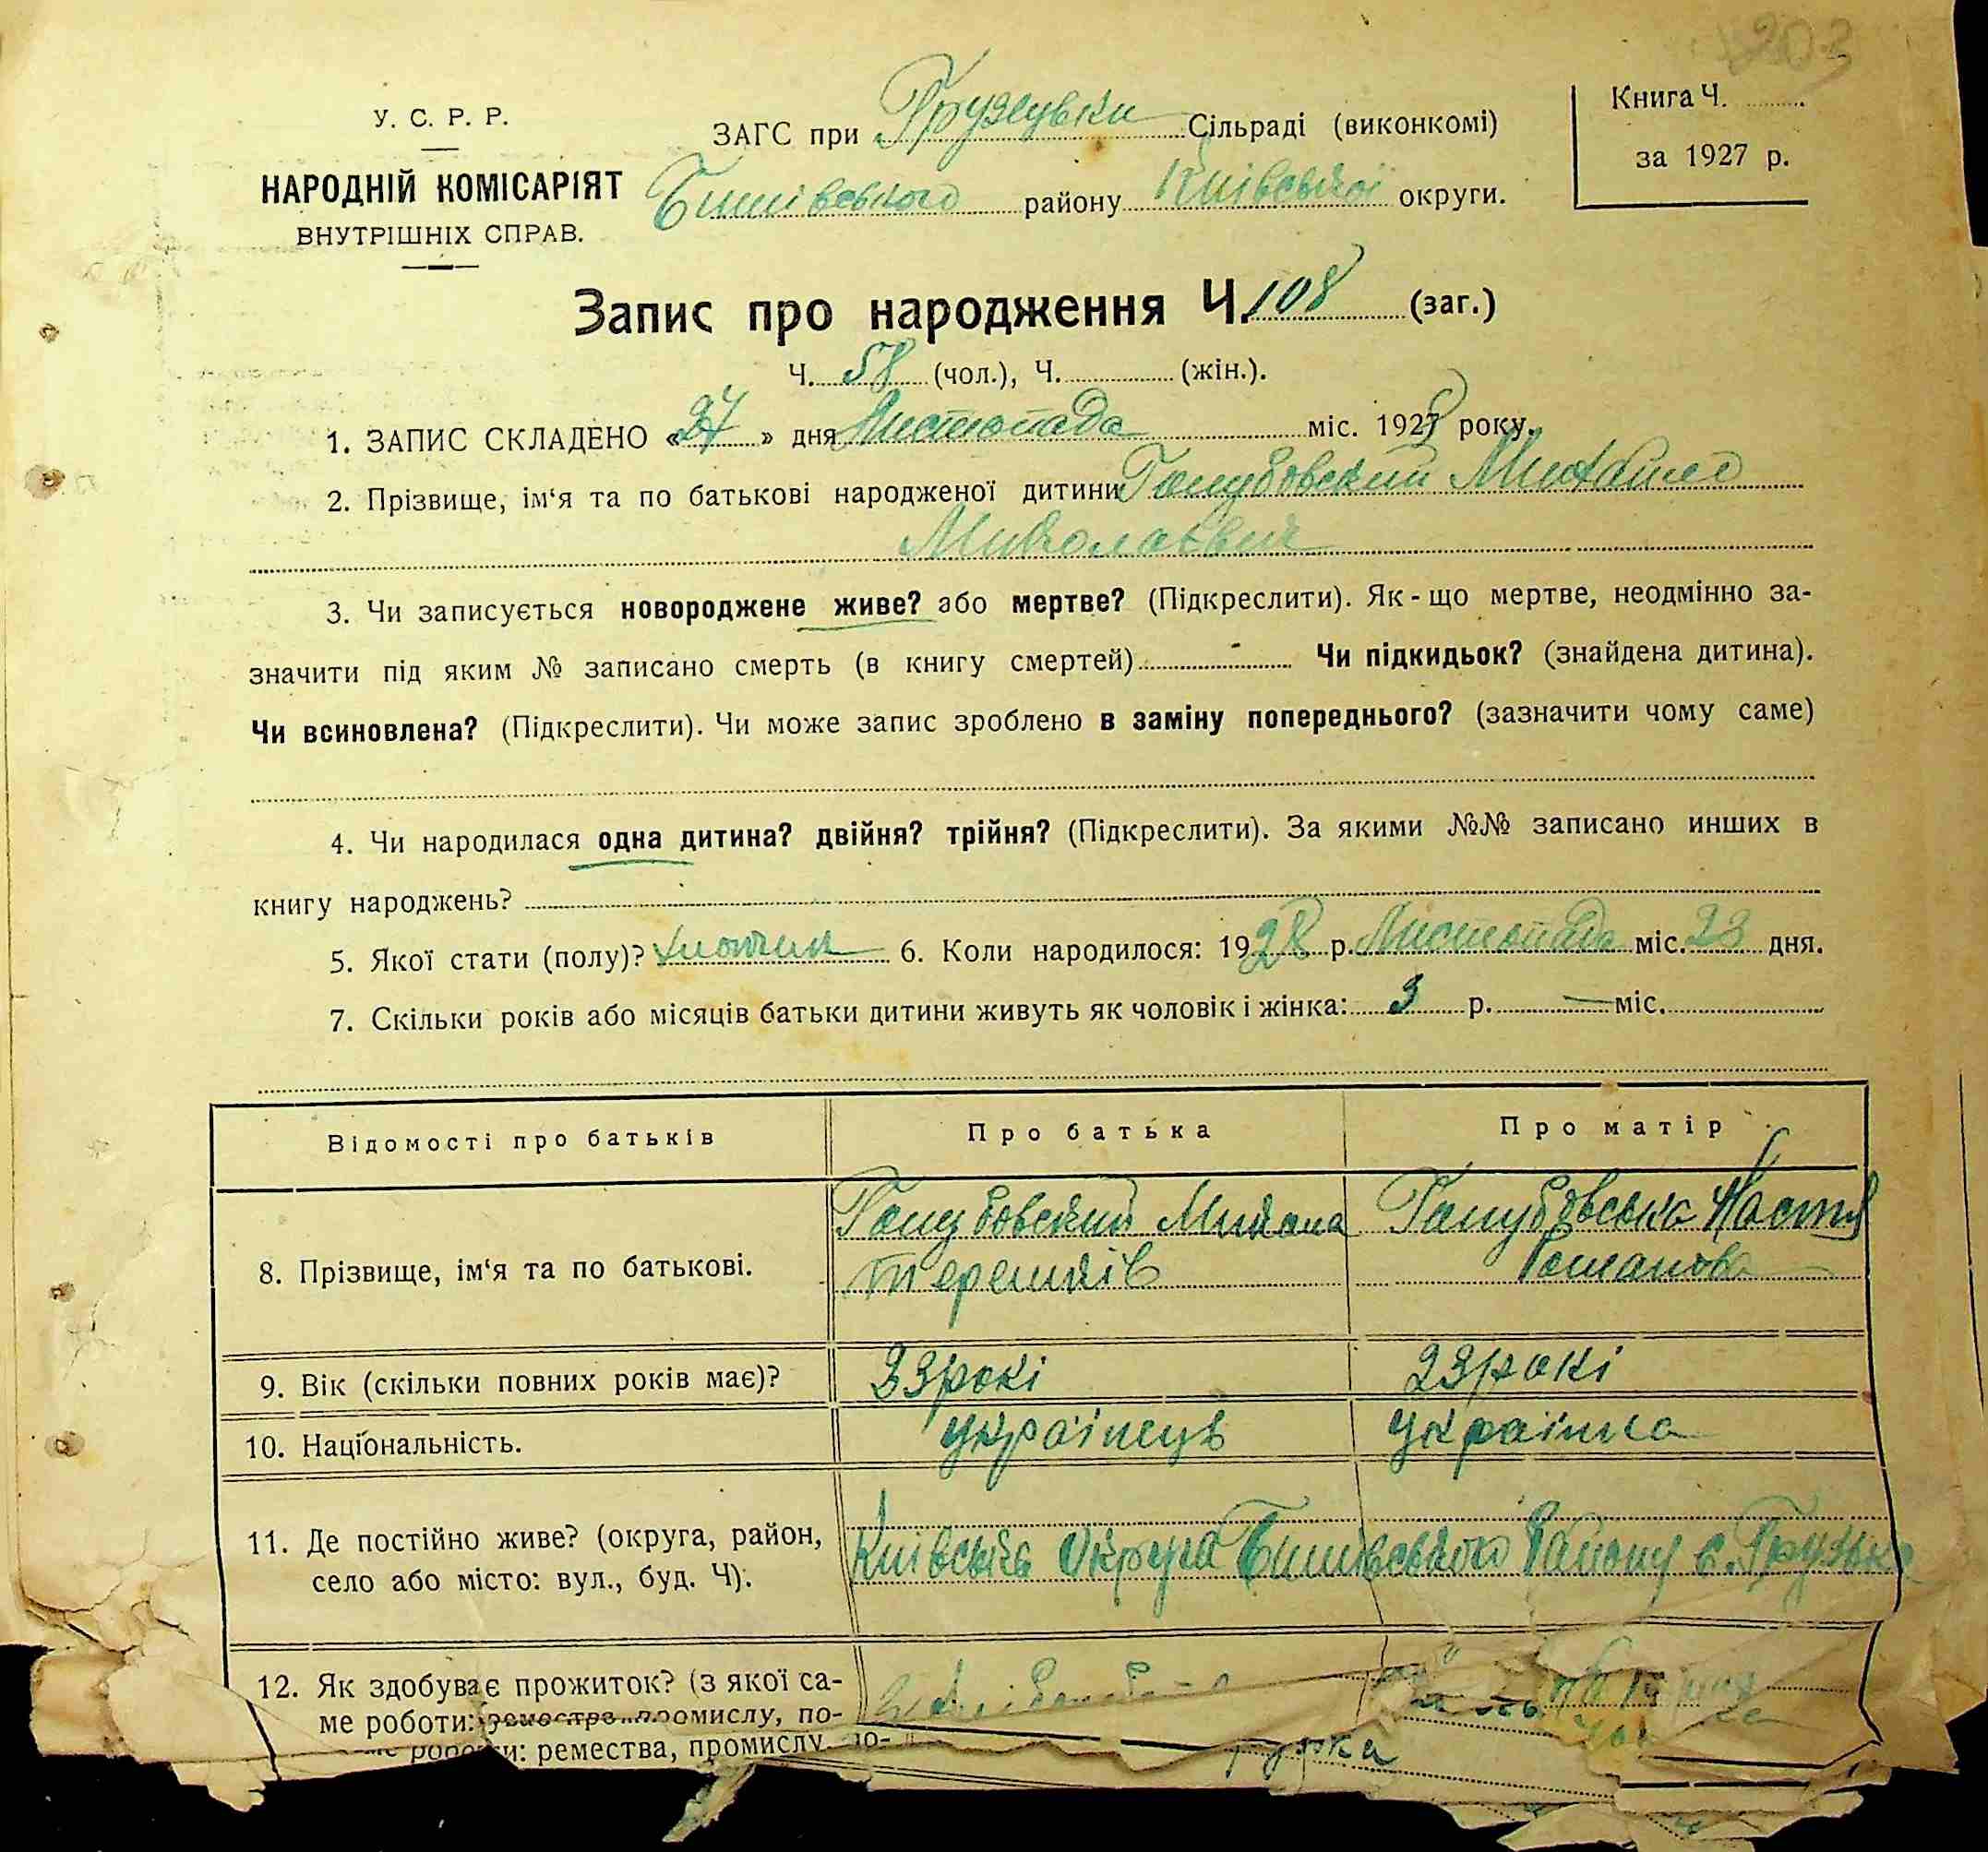 203
У. С. Р. Р.
НАРОДНІЙ КОМІСАРІЯТ
ВНУТРІШНІХ СПРАВ.
ЗАГС при Грузцувки Сільраді (виконкомі)
Бишівського району Київської округи.
Книга Ч.
за 1927 р.
Запис про народження Ч. 108 (заг.)
Ч. 58 (чол.), Ч. (жін.).
1. ЗАПИС СКЛАДЕНО «27» дня Листопада міс. 1928 року.
2. Прізвище, ім‘я та по батькові народженої дитини Голубовский Михайло
Миколаевич
3. Чи записується новороджене живе? або мертве? (Підкреслити). Як-що мертве, неодмінно за-
значити під яким № записано смерть (в книгу смертей) - Чи підкидьок? (знайдена дитина).
Чи всиновлена? (Підкреслити). Чи може запис зроблено в заміну попереднього? (зазначити чому саме)
4. Чи народилася одна дитина? двійня? трійня? (Підкреслити). За якими №№ записано инших в
книгу народжень?
5. Якої стати (полу)? хлопчик 6. Коли народилося: 1928 р. Листопада міс. 23 дня.
7. Скільки років або місяців батьки дитини живуть як чоловік і жінка: 3 р. — міс.
Відомості про батьків Про батька Про матір
8. Прізвище, ім‘я та по батькові. Голубовский Микола Голубовська Настя
Терешків Романова
9. Вік (скільки повних років має)? 23 рокі 23 рокі
10. Національність. українець українка
11. Де постійно живе? (округа, район, село або місто: вул., буд. Ч). Київська Округа Бишівського Району с. Грузьке
12. Як здобуває прожиток? (з якої са-
ме роботи: ремества, промислу, по-
ме роботи: ремества, промислу, по-